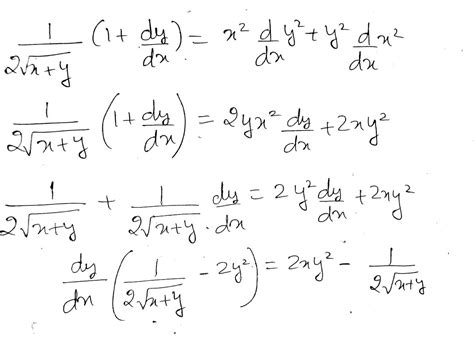 1/(2√(x+y)) (1 + dy/dx) = x² d/dx y² + y² d/dx x²
1/(2√(x+y)) (1 + dy/dx) = 2yx² dy/dx + 2xy²
1/(2√(x+y)) + 1/(2√(x+y)) · dy/dx = 2y² dy/dx + 2xy²
dy/dx (1/(2√(x+y)) - 2y²) = 2xy² - 1/(2√(x+y))